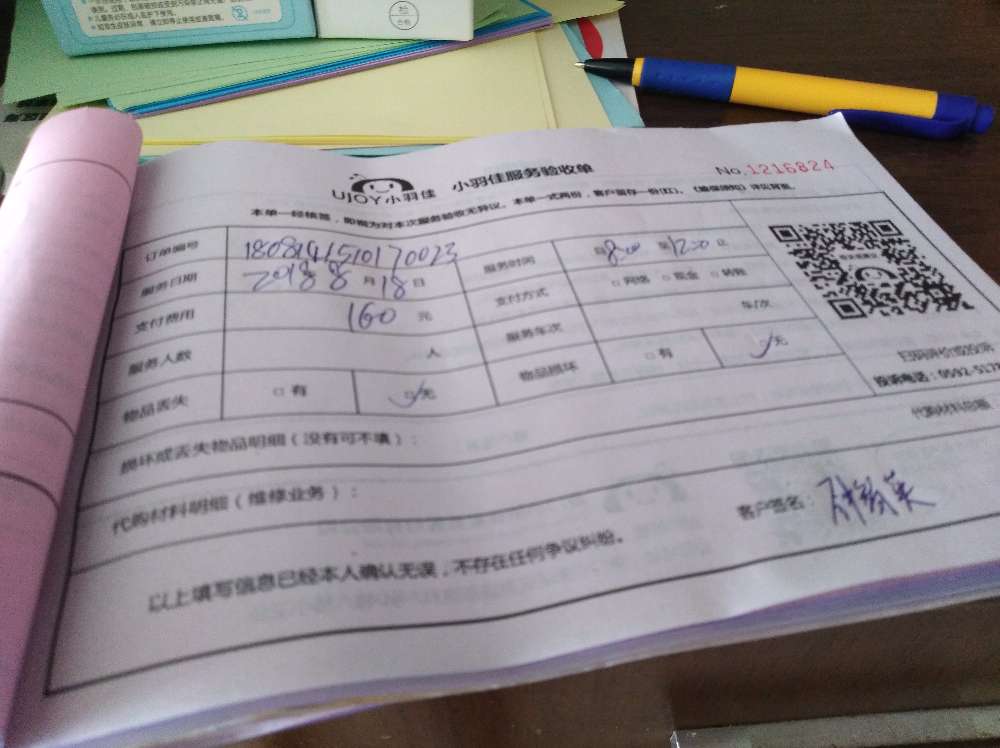 检
合格
UJOY小羽佳 小羽佳服务验收单 No.1216824
本单一经核签，即视为对本次服务验收无异议。本单一式两份，客户留存一份(红)，
订单编号
服务时间 8:00 至 12:00 止
服务日期 2018 8 月 18 日
支付方式 □ 网络 □ 现金 □ 转账
支付费用 160 元
服务车次 车/次
服务人数 人
物品损坏 □ 有 □ 无
物品丢失 □ 有 □ 无
扫码评价或投诉
投诉电话：0592-517
损坏或丢失物品明细（没有可不填）：
代购材料总额
代购材料明细（维修业务）：
客户签名：
以上填写信息已经本人确认无误，不存在任何争议纠纷。